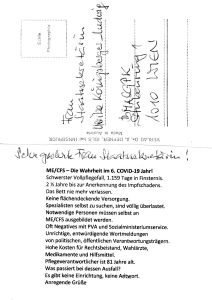 Frau
Staatssekretärin
Ulrike Königsberger-Ludwig
BMASGPK
Stubenring 1
1010 WIEN
Made in Austria
Sehr geehrte Frau Staatssekretärin!
ME/CFS – Die Wahrheit im 6. COVID-19 Jahr!
Schwerster Vollpflegefall, 1.159 Tage in Finsternis.
2 ¾ Jahre bis zur Anerkennung des Impfschadens.
Das Bett nie mehr verlassen.
Keine flächendeckende Versorgung.
Spezialisten selbst zu suchen, sind völlig überlastet.
Notwendige Personen müssen selbst an
ME/CFS ausgebildet werden.
Oft Negatives mit PVA und Sozialministeriumservice.
Unrichtige, entwürdigende Wortmeldungen
von politischen, öffentlichen Verantwortungsträgern.
Hohe Kosten für Rechtsbeistand, Wahlärzte,
Medikamente und Hilfsmittel.
Pflegeverantwortlicher ist 81 Jahre alt.
Was passiert bei dessen Ausfall?
Es gibt keine Einrichtung, keine Antwort.
Anregende Grüße